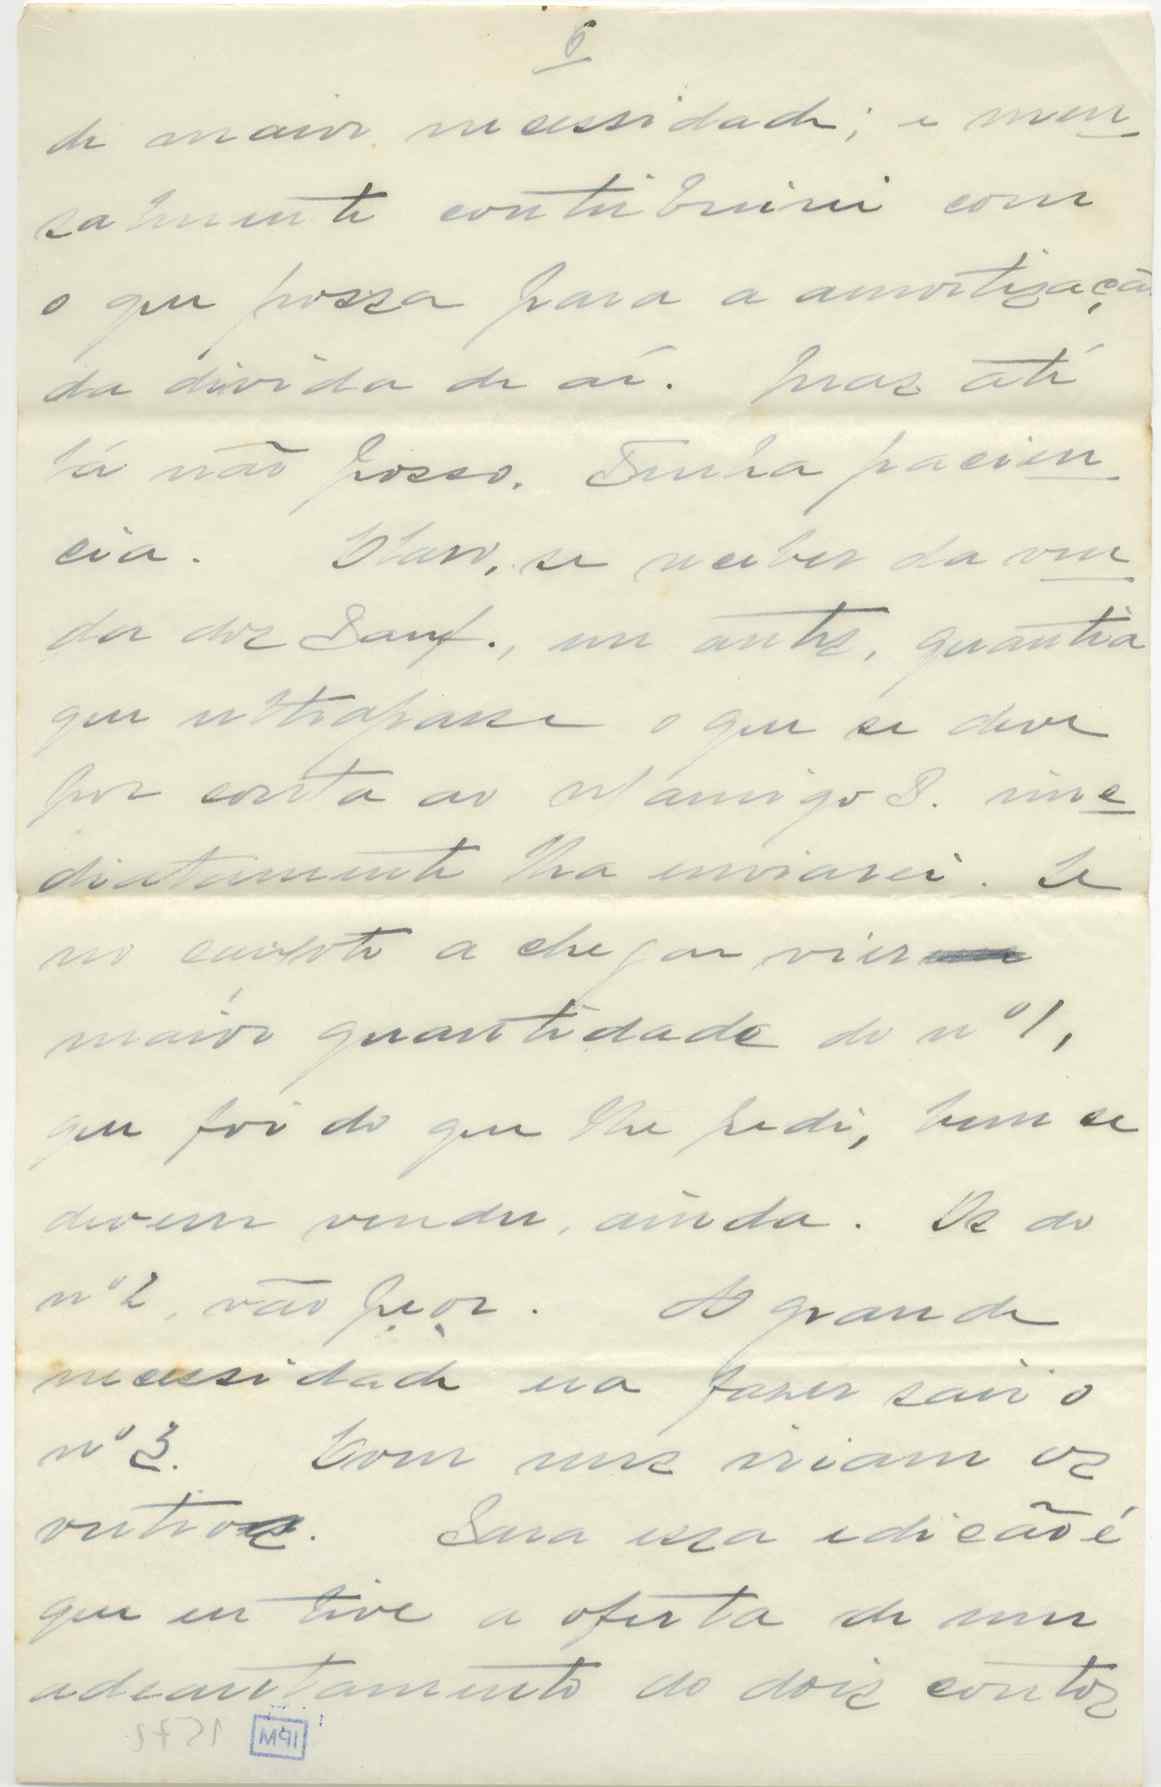 6
de maior necessidade; e men
salmente contribuirei com
o que possa para a amortização
da divida de aí. Mas até
lá não posso. Tenha pacien
cia. Claro, se receber da ven
da dos Panf., ou antes, quantia
que ultrapasse o que se deve
por conta ao amigo P. ime
diatamente lha enviarei. Se
no caixote a chegar vier
maiór quantidade do nº 1,
que foi do que lhe pedi, bem se
devem vender, ainda. Os do
nº 2, vão peór. A grande
necessidade era fazer sair o
nº 3. Com uns iriam os
outros. Para essa edicão é
que eu tive a oferta de um
adeantamento de dois contos
IPM